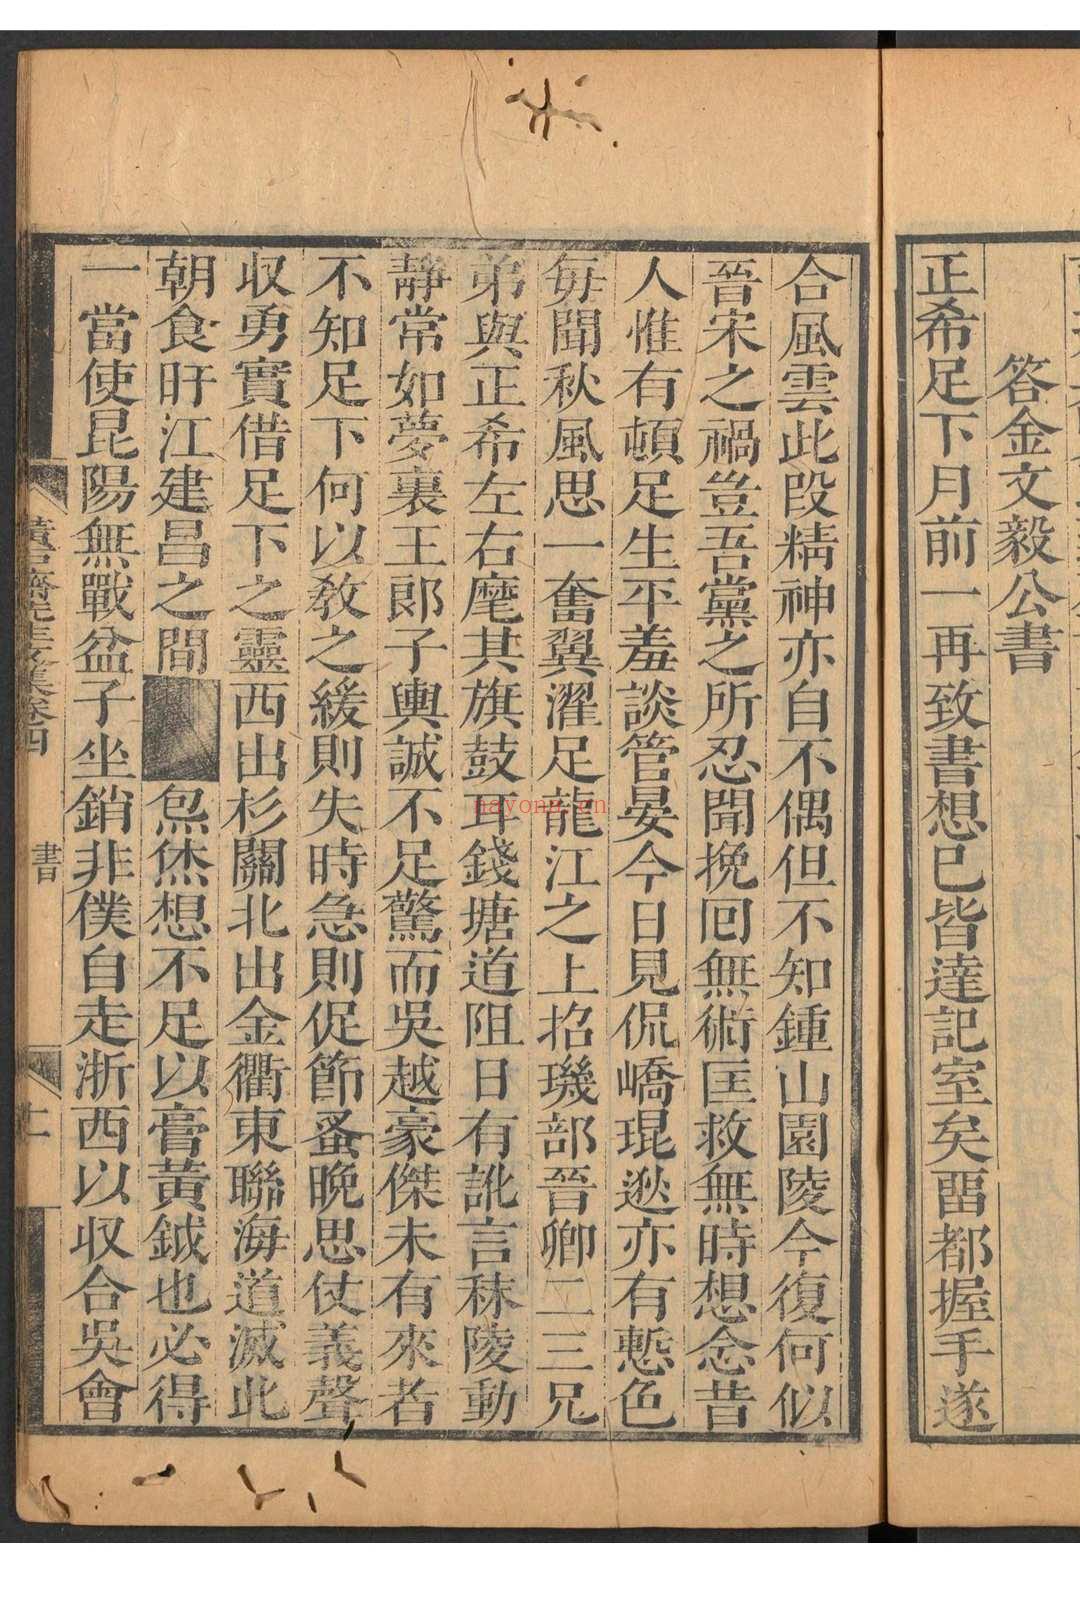 答金文毅公書
正希足下月前一再致書想已皆達記室矣畱都握手遂
合風雲此段精神亦自不偶但不知鍾山園陵今復何似
晉宋之禍豈吾黨之所忍聞挽囘無術匡救無時想念昔
人惟有頓足生平羞談管晏今日見侃嶠琨逖亦有慙色
每聞秋風思一奮翼濯足龍江之上招璣部晉卿二三兄
弟與正希左右麾其旗鼓耳錢塘道阻日有訛言秣陵動
靜常如夢裏王郎子輿誠不足驚而吳越豪傑未有來者
不知足下何以敎之緩則失時急則促節蚤晚思仗義聲
収勇實借足下之靈西出杉關北出金衢東聯海道滅此
朝食旰江建昌之間 炰烋想不足以膏黃鉞也必得
一當使昆陽無戰盆子坐銷非僕自走浙西以収合吳會
黃石齋先生文集卷四
書
十一
nayong.cn